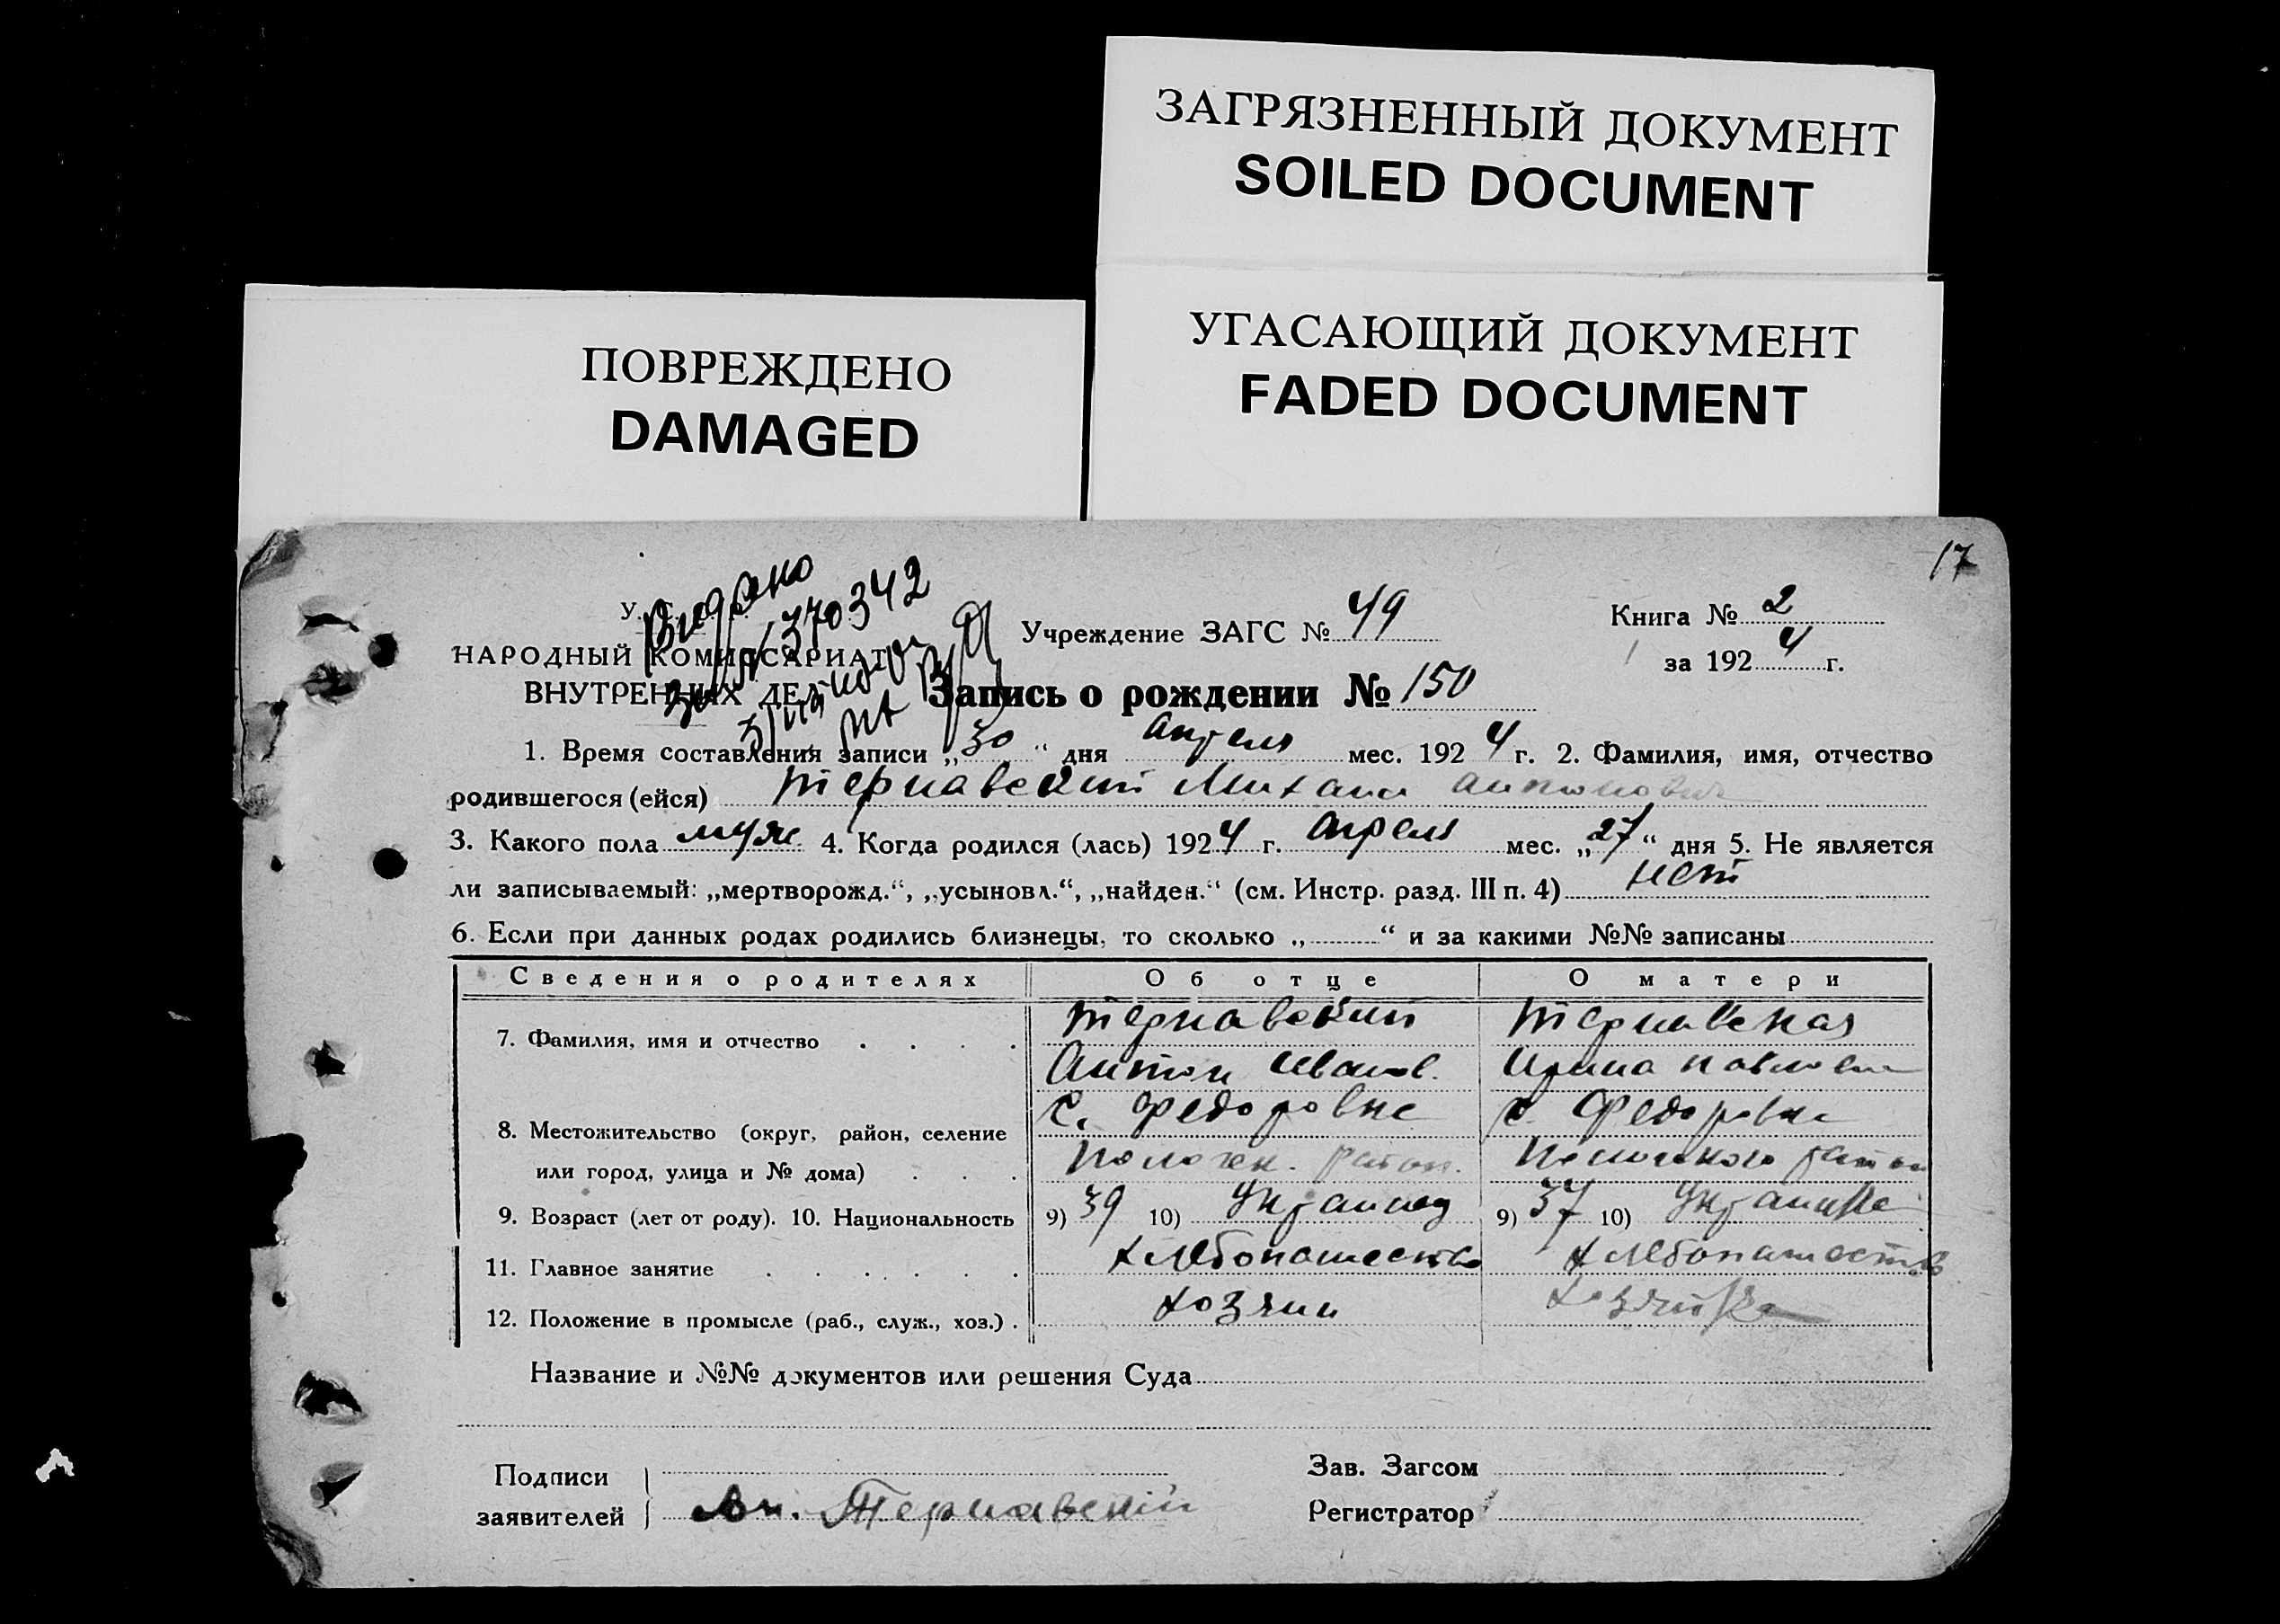 ЗАГРЯЗНЕННЫЙ ДОКУМЕНТ
SOILED DOCUMENT
УГАСАЮЩИЙ ДОКУМЕНТ
FADED DOCUMENT
ПОВРЕЖДЕНО
DAMAGED
17
Видано
N 370342
НАРОДНЫЙ КОМИССАРИАТ
ВНУТРЕННИХ ДЕЛ
Учреждение ЗАГС № 49
Книга № 2
за 1924 г.
Запись о рождении № 150
1. Время составления записи „30“ дня апреля мес. 1924 г. 2. Фамилия, имя, отчество
родившегося (ейся) Тернавский Михаил Антонович
3. Какого пола муж. 4. Когда родился (лась) 1924 г. апреля мес. „27“ дня 5. Не является
ли записываемый: „мертворожд.“, „усыновл.“, „найден.“ (см. Инстр. разд. III п. 4) нет
6. Если при данных родах родились близнецы, то сколько „ “ и за какими №№ записаны
Сведения о родителях Об отце О матери
7. Фамилия, имя и отчество Тернавский Тернавская
Антон Иванов. Ирина Павловна
с. Федоровке с. Федоровке
8. Местожительство (округ, район, селение
или город, улица и № дома) Пологск. район.
9. Возраст (лет от роду). 10. Национальность 9) 39 10) Украинец 9) 37 10) Украинка
11. Главное занятие хлебопашество хлебопашество
12. Положение в промысле (раб., служ., хоз.) хозяин хозяйка
Название и №№ документов или решения Суда
Подписи
заявителей Ан. Тернавский
Зав. Загсом
Регистратор